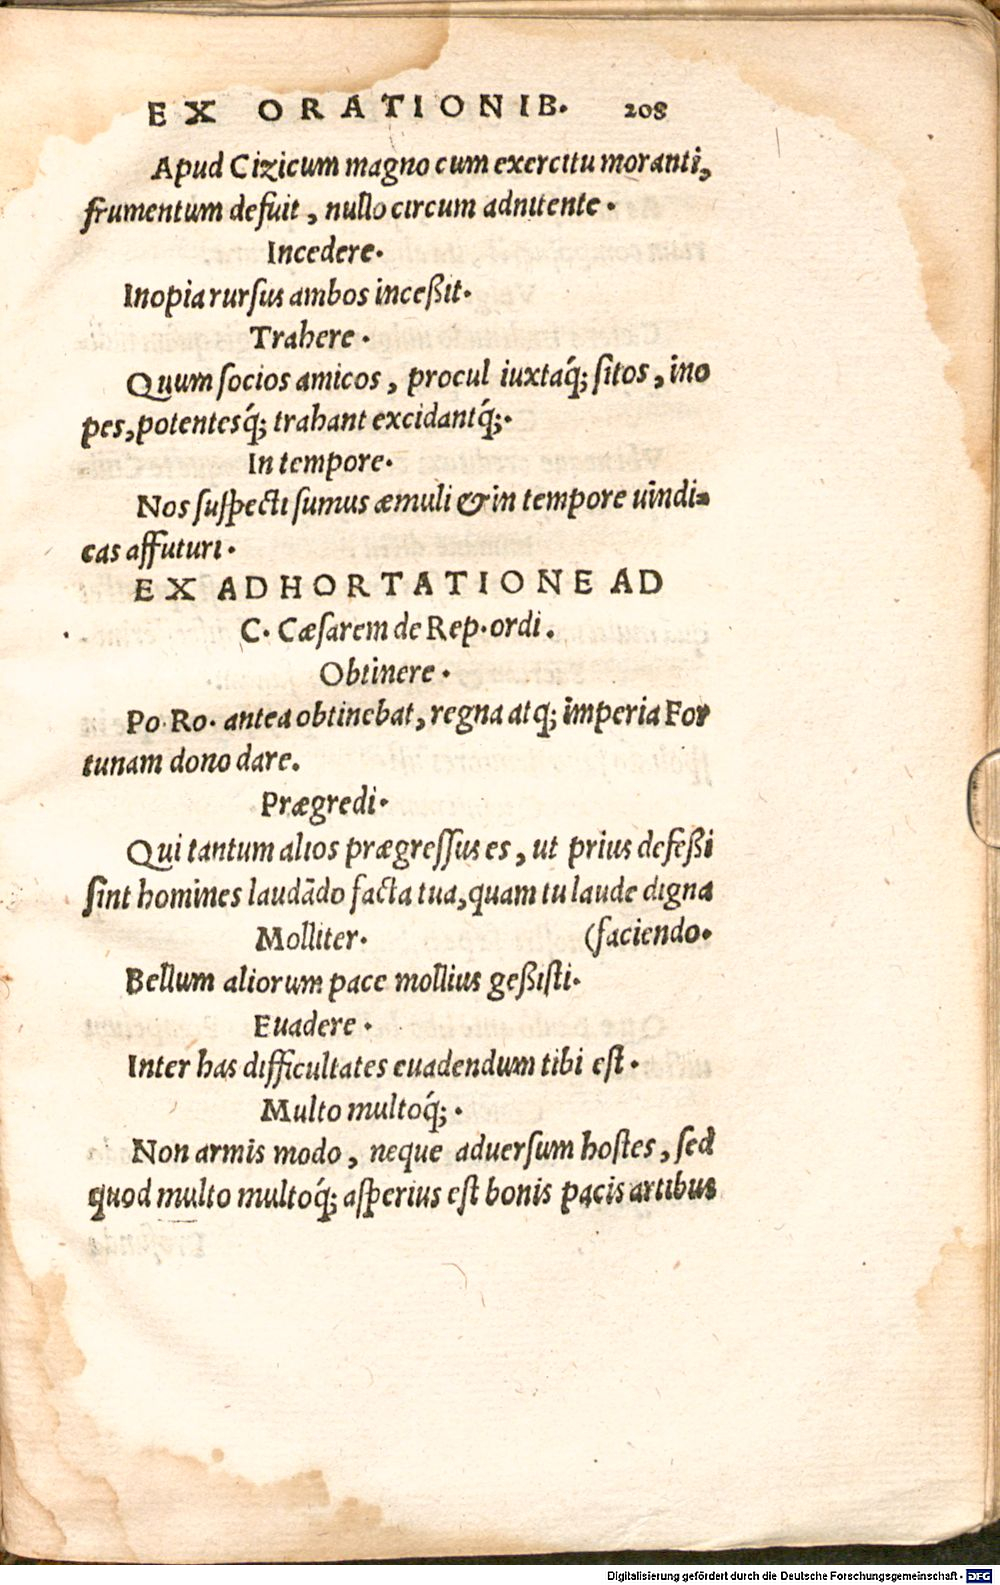 EX ORATIONIB. 208
Apud Cizicum magno cum exercitu moranti,
frumentum defuit, nullo circum adnitente.
Incedere.
Inopia rursus ambos inceßit.
Trahere.
Quum socios amicos, procul iuxtaq́; sitos, ino
pes, potentesq́; trahant excidantq́;.
In tempore.
Nos suspecti sumus æmuli & in tempore uindi=
cas affuturi.
EX ADHORTATIONE AD
C. Cæsarem de Rep. ordi.
Obtinere.
Po. Ro. antea obtinebat, regna atq; imperia For
tunam dono dare.
Prægredi.
Qui tantum alios prægressus es, ut prius defeßi
sint homines laudādo facta tua, quam tu laude digna
Molliter. (faciendo.
Bellum aliorum pace mollius geßisti.
Euadere.
Inter has difficultates euadendum tibi est.
Multo multoq́;.
Non armis modo, neque aduersum hostes, sed
quod multo multoq́; asperius est bonis pacis artibus
Digitalisierung gefördert durch die Deutsche Forschungsgemeinschaft - DFG